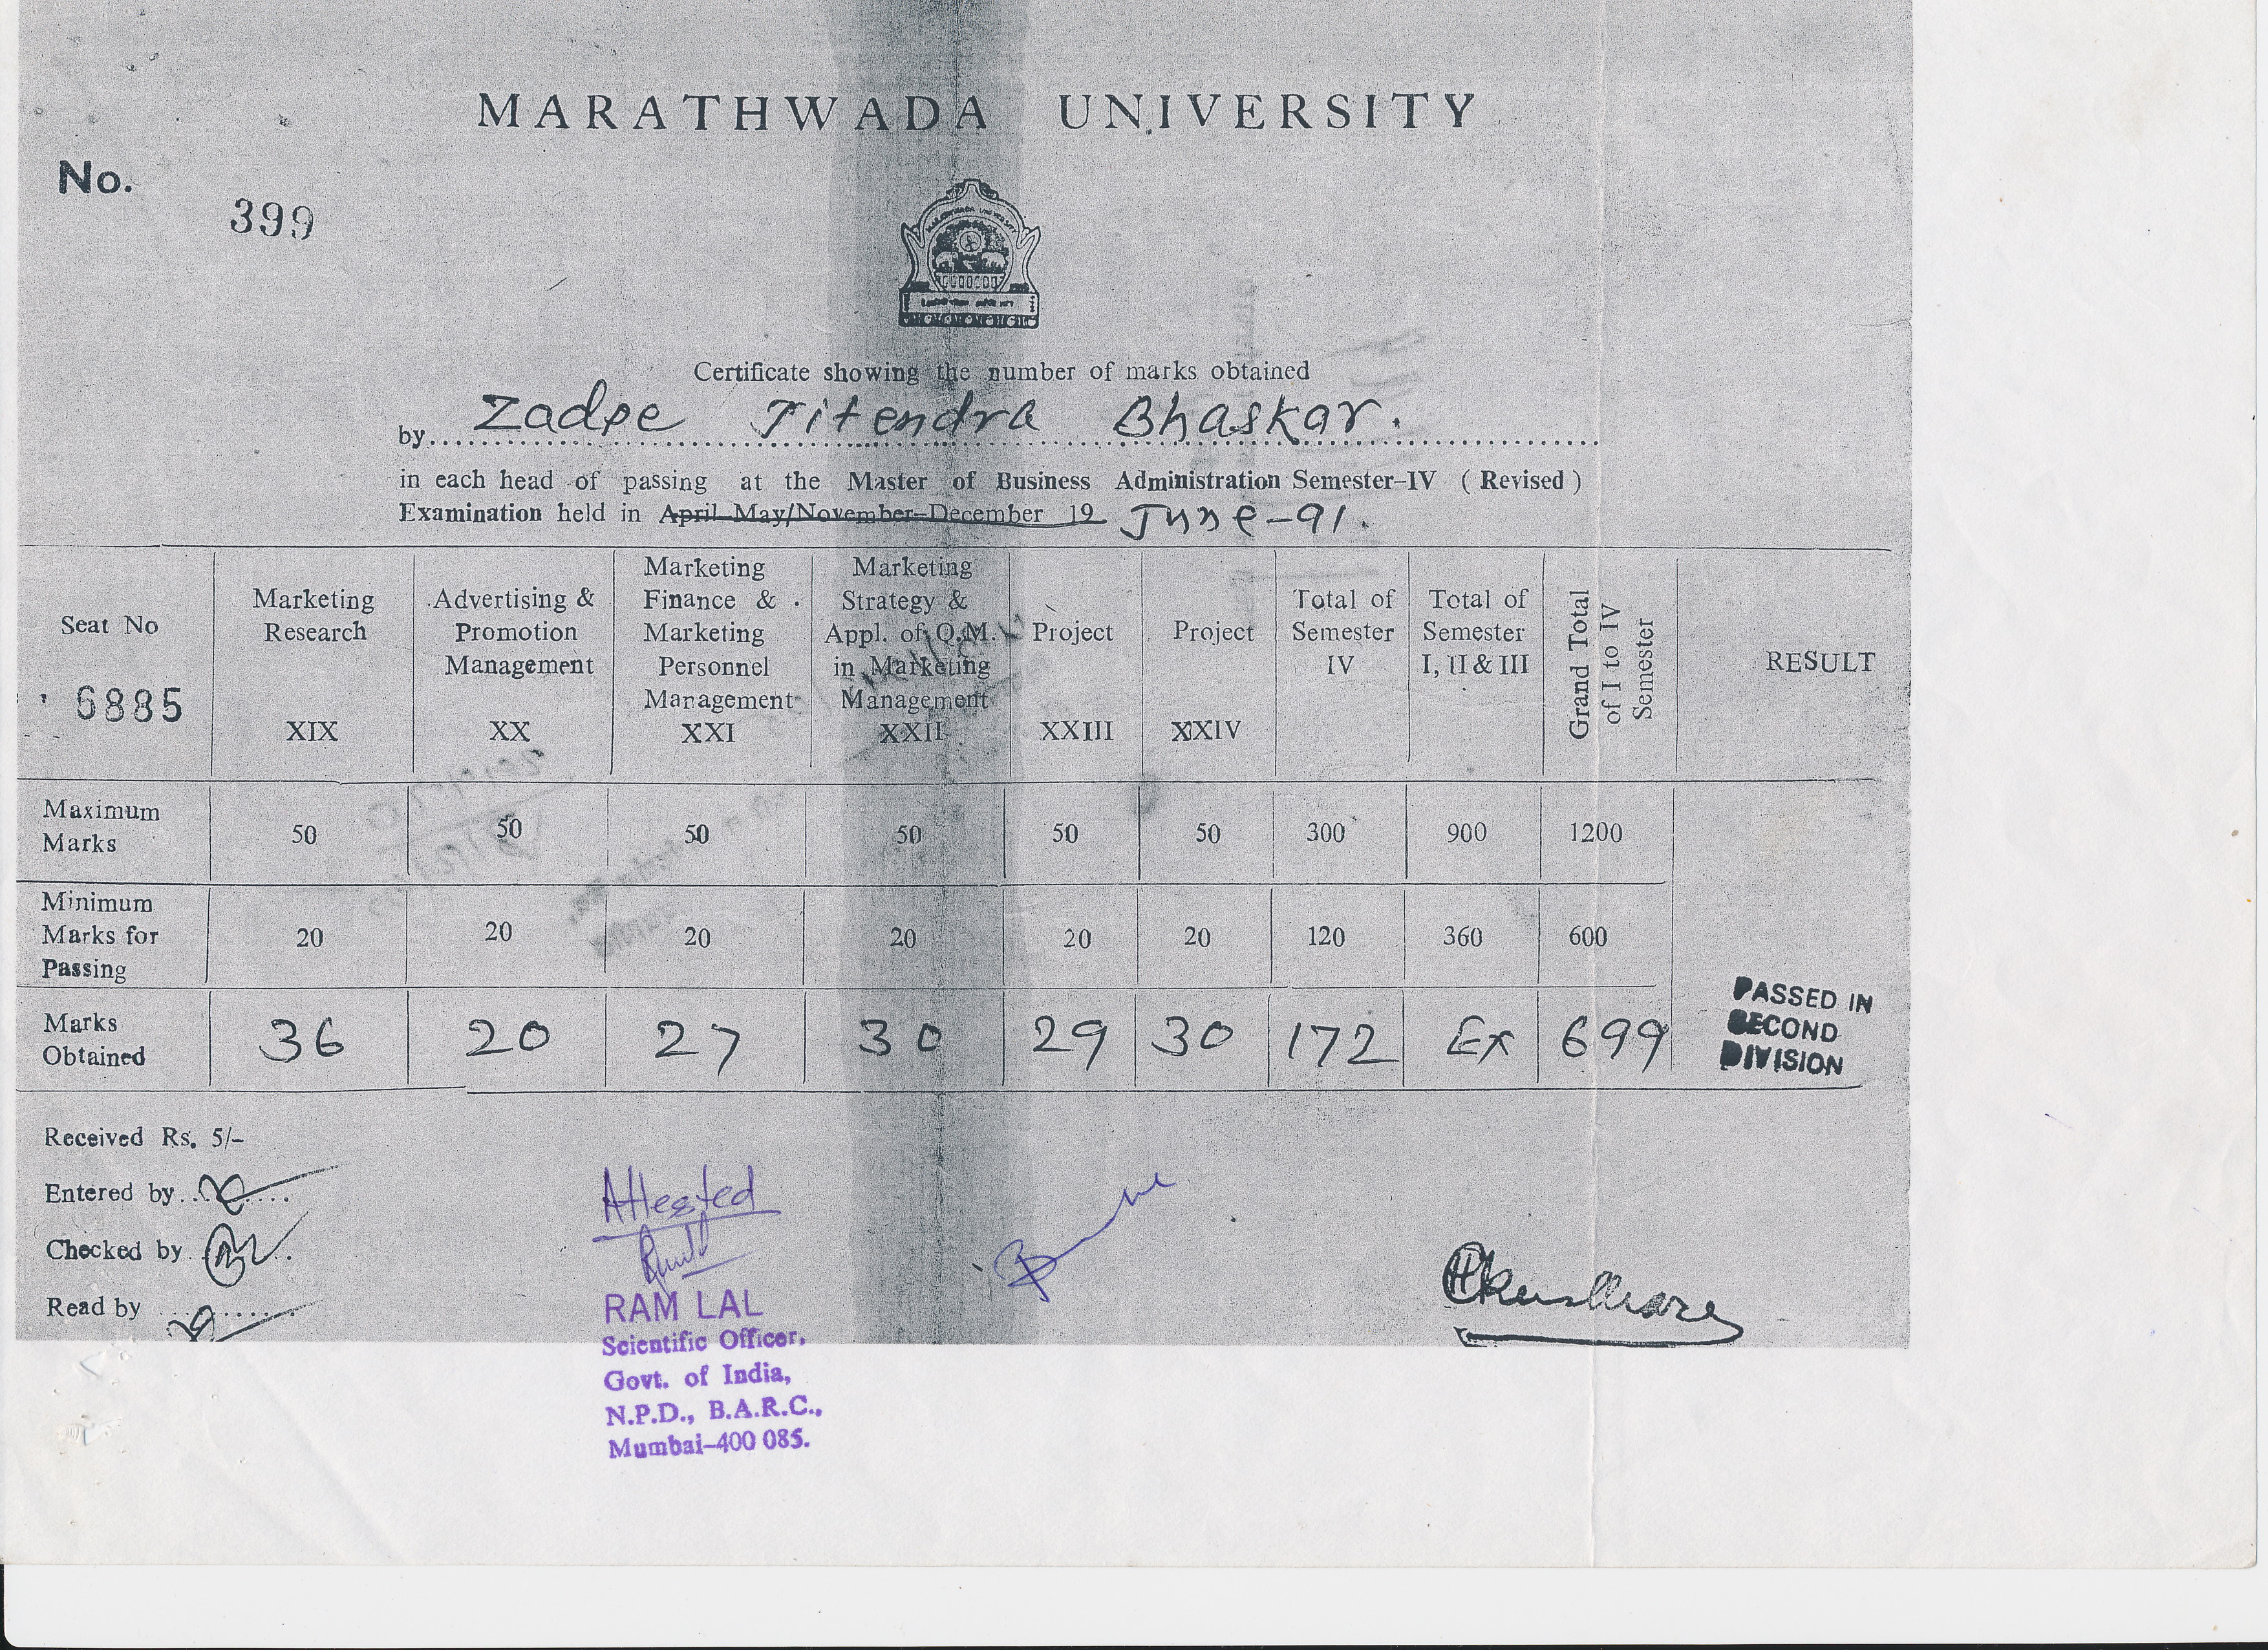 MARATHWADA UNIVERSITY
No.
399
Certificate showing the number of marks obtained
by Zadpe Jitendra Bhaskar.
in each head of passing at the Master of Business Administration Semester–IV ( Revised )
Examination held in April–May/November–December 19 June–91.
Seat No
6885
Marketing
Research
XIX
Advertising &
Promotion
Management
XX
Marketing
Finance &
Marketing
Personnel
Management
XXI
Marketing
Strategy &
Appl. of Q.M.
in Marketing
Management
XXII
Project
XXIII
Project
XXIV
Total of
Semester
IV
Total of
Semester
I, II & III
Grand Total
of I to IV
Semester
RESULT
Maximum
Marks
50 50 50 50 50 50 300 900 1200
Minimum
Marks for
Passing
20 20 20 20 20 20 120 360 600
Marks
Obtained
36 20 27 30 29 30 172 Ex 699
PASSED IN
SECOND
DIVISION
Received Rs. 5/–
Entered by
Checked by
Read by
Attested
RAM LAL
Scientific Officer,
Govt. of India,
N.P.D., B.A.R.C.,
Mumbai–400 085.